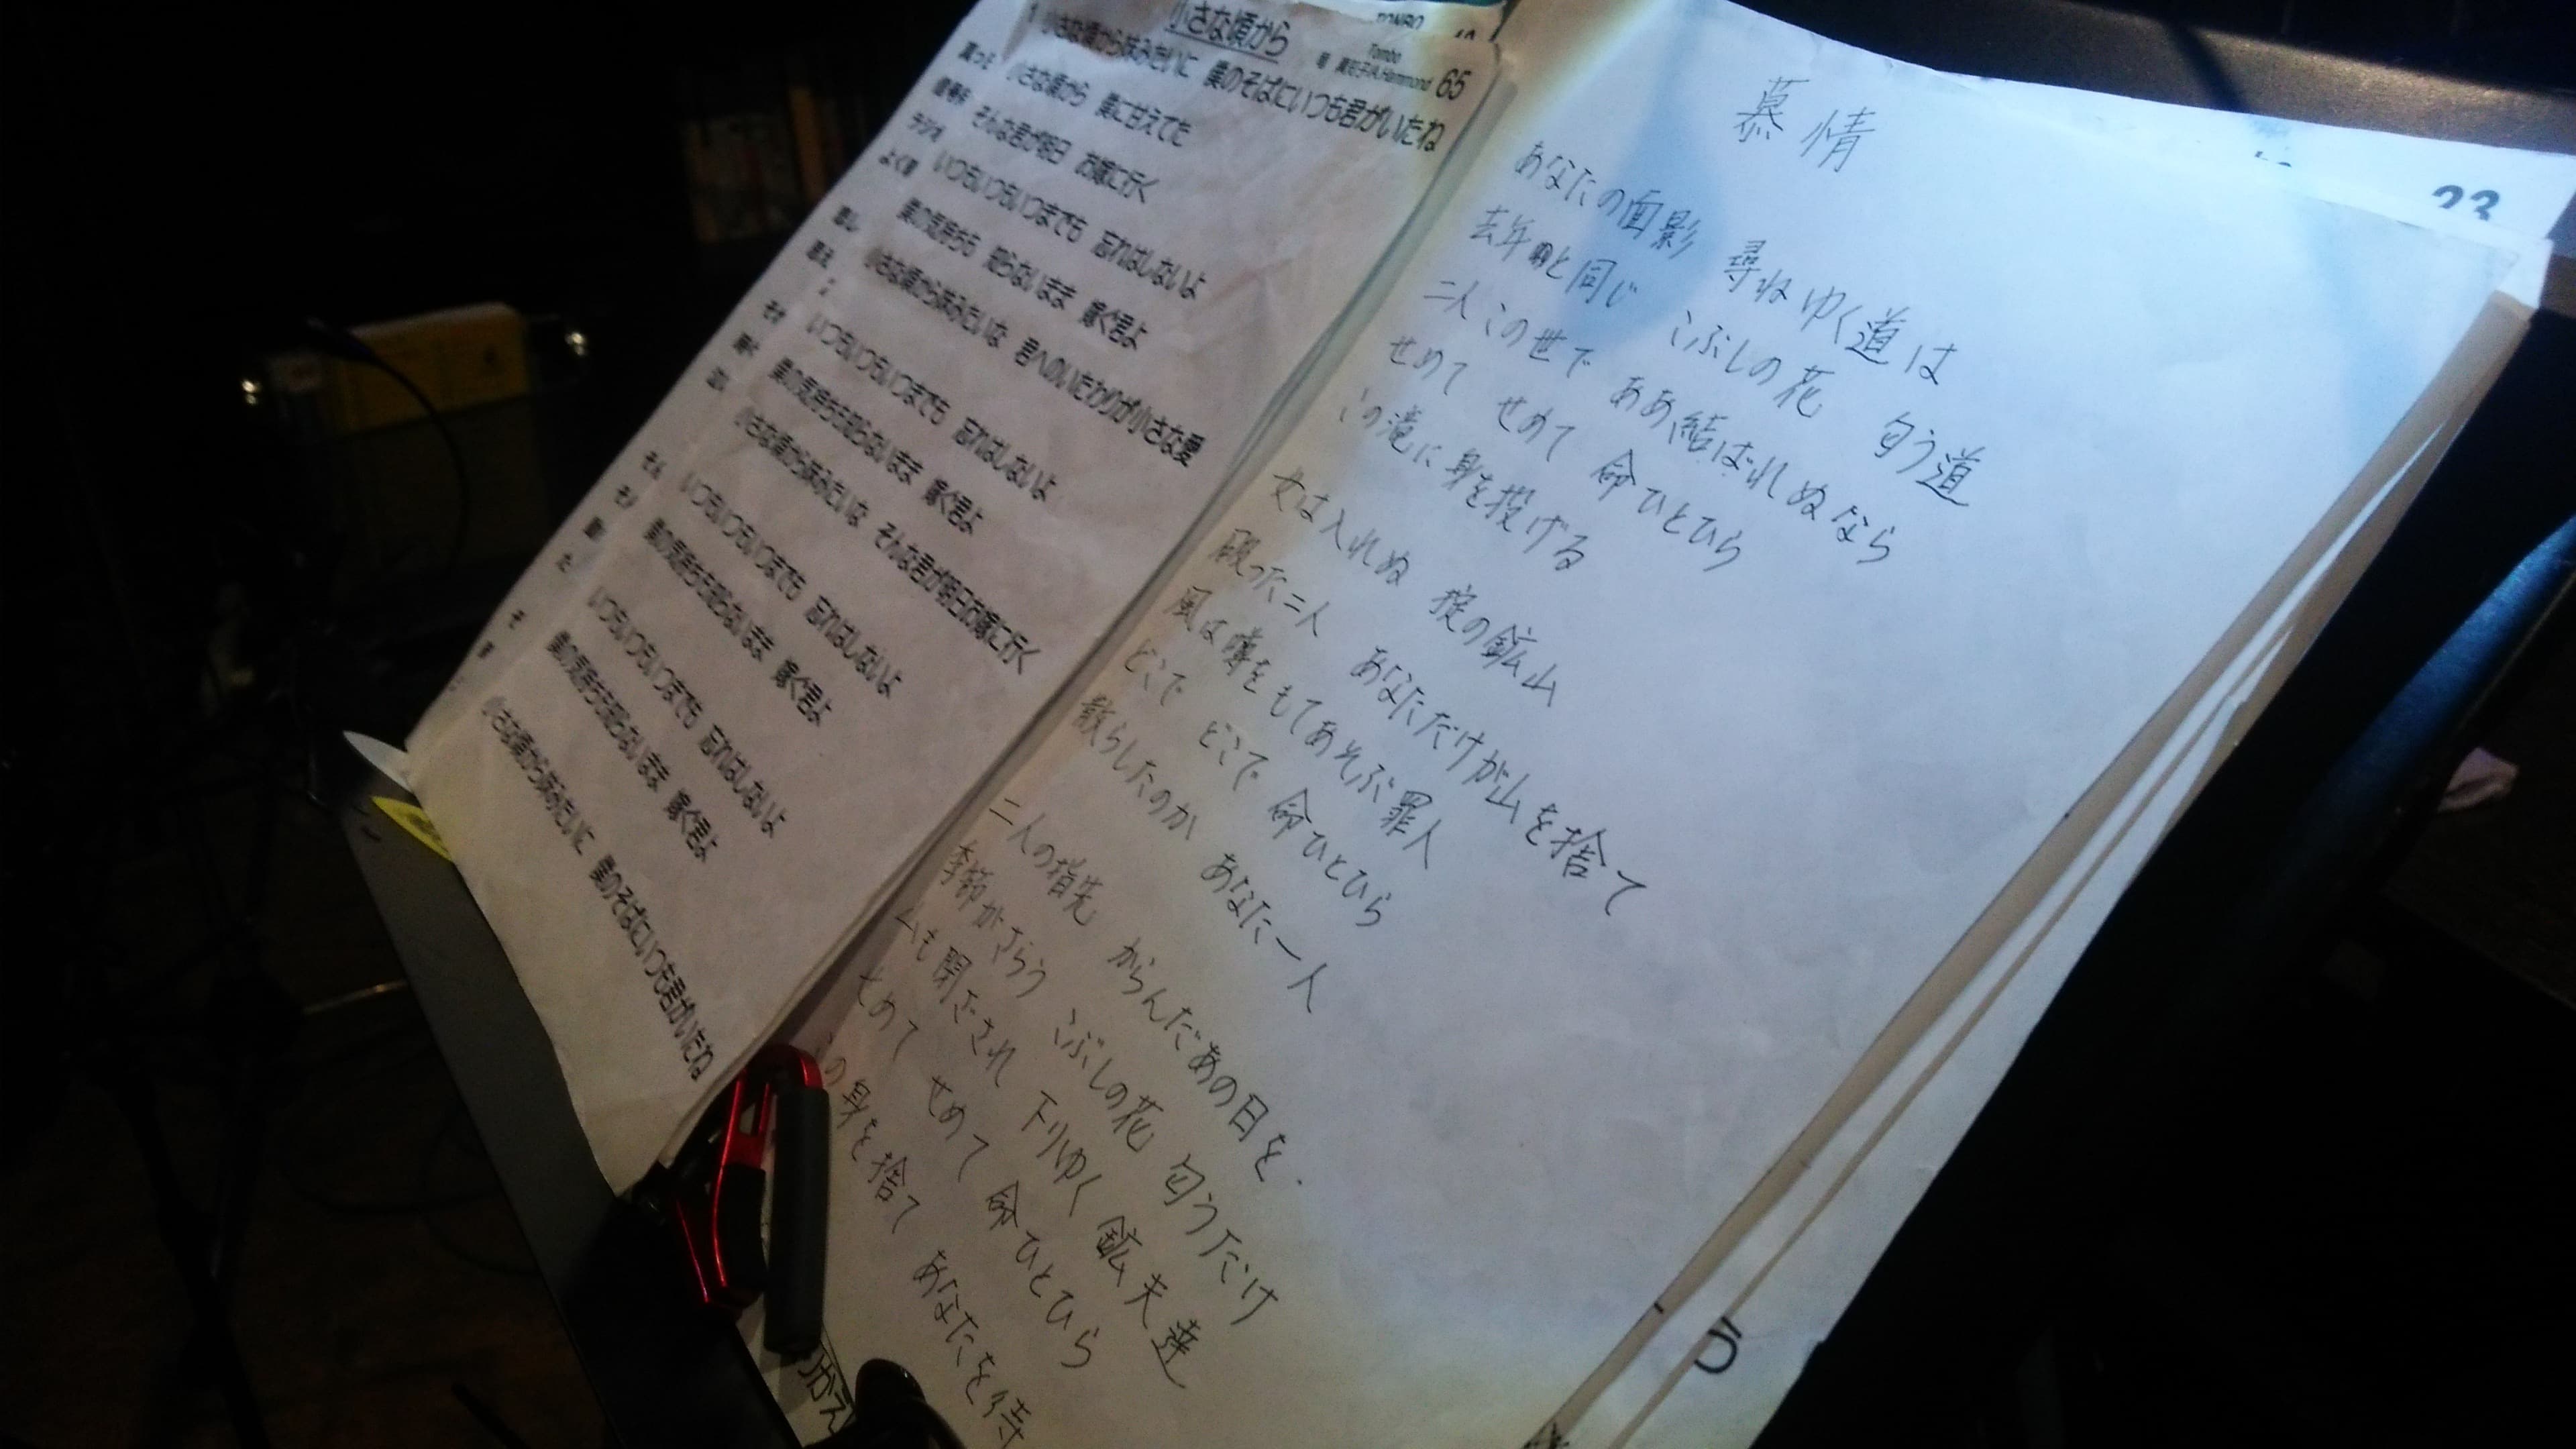 小さな頃から
TONBO
Tombo
A.Hammond 65
小さな頃から妹みたいに 僕のそばにいつも君がいたね
小さな頃から 僕に甘えてた
そんな君が明日 お嫁に行く
いつもいつもいつまでも 忘れはしないよ
僕の気持ちも 知らないまま 嫁ぐ君よ
小さな頃から妹みたいな 君へのいたわりが小さな愛
いつもいつもいつまでも 忘れはしないよ
僕の気持ちも知らないまま 嫁ぐ君よ
小さな頃から妹みたいな そんな君が明日お嫁に行く
いつもいつもいつまでも 忘れはしないよ
僕の気持ちも知らないまま 嫁ぐ君よ
いつもいつもいつまでも 忘れはしないよ
僕の気持ちも知らないまま 嫁ぐ君よ
小さな頃から妹みたいに 僕のそばにいつも君がいたね
ラジオ
23
慕情
あなたの面影 尋ねゆく道は
去年と同じ こぶしの花 匂う道
二人この世で ああ結ばれぬなら
せめて せめて 命ひとひら
この滝に身を投げる
女は入れぬ 掟の鉱山
破った二人 あなただけが山を捨て
風は噂をもてあそぶ罪人
どこで どこで 命ひとひら
散らしたのか あなた一人
二人の指先 からんだあの日を
季節がさらう こぶしの花 匂うだけ
山も閉ざされ 下りゆく 鉱夫達
せめて せめて 命ひとひら
この身を捨て あなたを待
りかえ